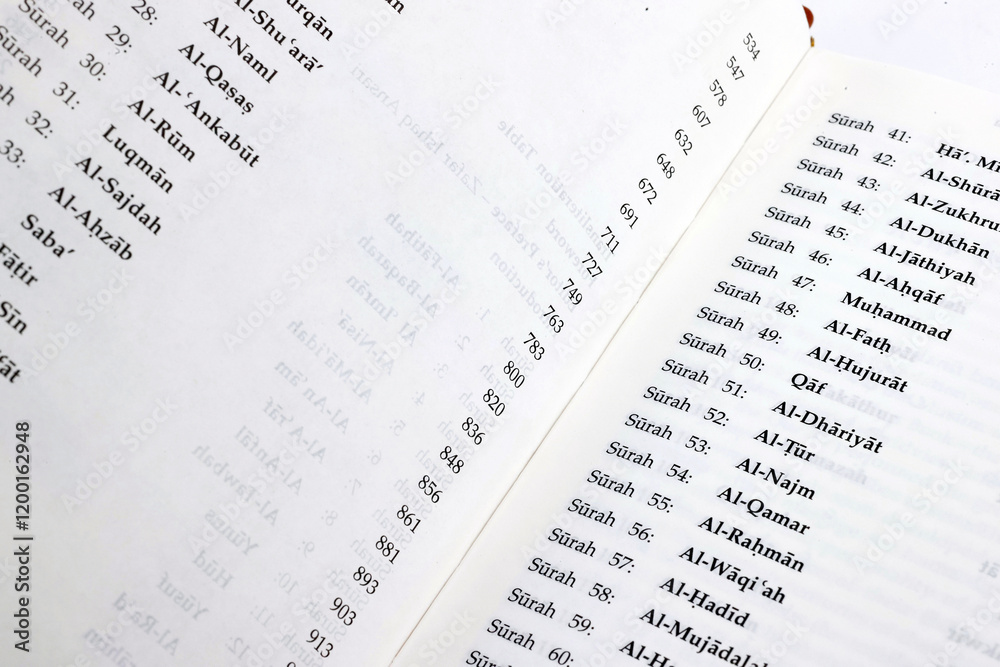 Al-Shuʿarā’
Al-Naml
28: Al-Qaṣaṣ
Sūrah 29: Al-ʿAnkabūt
Sūrah 30: Al-Rūm
Sūrah 31: Luqmān
32: Al-Sajdah
33: Al-Aḥzāb
Saba’
Fāṭir
Sīn
534
547
578
607
632
648
672
691
711
727
749
763
783
800
820
836
848
856
861
881
893
903
913
Sūrah 41: Ḥā’. Mi
Sūrah 42: Al-Shūrā
Sūrah 43: Al-Zukhru
Sūrah 44: Al-Dukhān
Sūrah 45: Al-Jāthiyah
Sūrah 46: Al-Aḥqāf
Sūrah 47: Muḥammad
Sūrah 48: Al-Fatḥ
Sūrah 49: Al-Ḥujurāt
Sūrah 50: Qāf
Sūrah 51: Al-Dhāriyāt
Sūrah 52: Al-Ṭūr
Sūrah 53: Al-Najm
Sūrah 54: Al-Qamar
Sūrah 55: Al-Raḥmān
Sūrah 56: Al-Wāqiʿah
Sūrah 57: Al-Ḥadīd
Sūrah 58: Al-Mujādalah
Sūrah 59:
Sūrah 60:
Adobe Stock | #1200162948